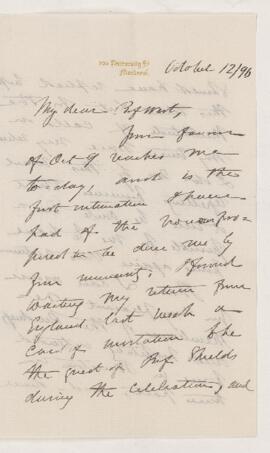 University St
Montreal.
October 12/96
My dear Prof West,
Your favour
of Oct 9 reaches me
to-day, and is the
first intimation I have
had of the honour pro-
posed to be done me by
your university. I found
waiting my return from
England last week a
card of invitation to be
the guest of Prof Shields
during the celebrations, and